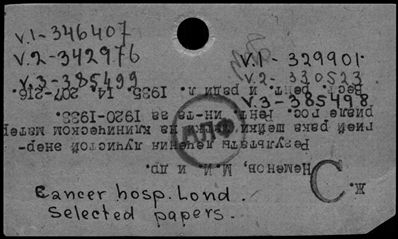 V.1-346407
V.2-342976
V.3-385499
V.1-329901.
V.2-330523
V.3-385498
Cancer hosp. Lond.
Selected papers.
Ж.
С
Неменов, М.И. и др.
Результаты лечения лучистой энер-
гией рака шейки матки на клиническом матер
риале гос. Рент. ин-та за 1920-1933.
Вест. рент. и ради л. 1935. 14, 207-216.